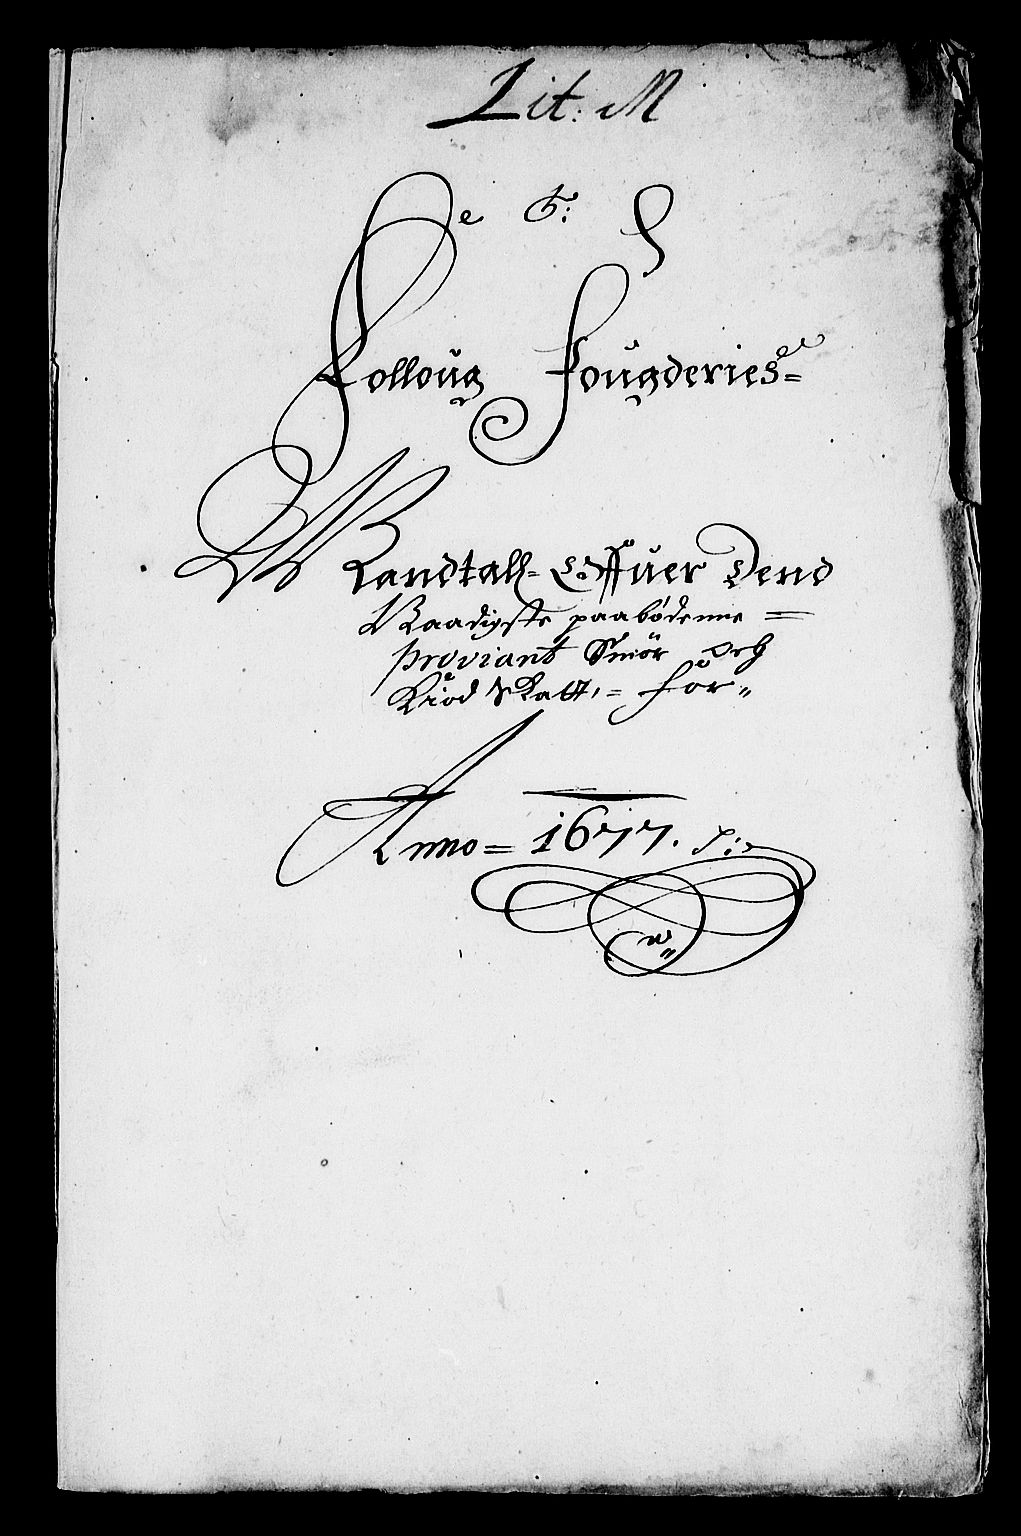 Lit: M
Folloug Fougderies=
Mandtall= Offuer Dend
Naadigste paabödenne =
Proviant Smör och
Kiöd Skatt,= för"
Anno= 1677.